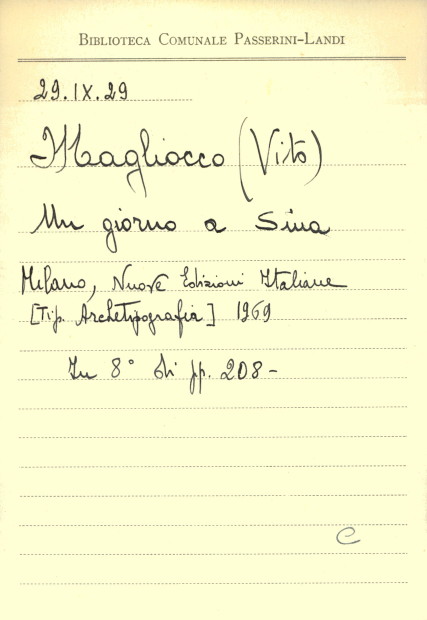 BIBLIOTECA COMUNALE PASSERINI-LANDI
29.IX.29
Magliocco (Vito)
Un giorno a Sina
Milano, Nuove Edizioni Italiane
[Tip. Archetipografia] 1969
In 8° di pp. 208-
C